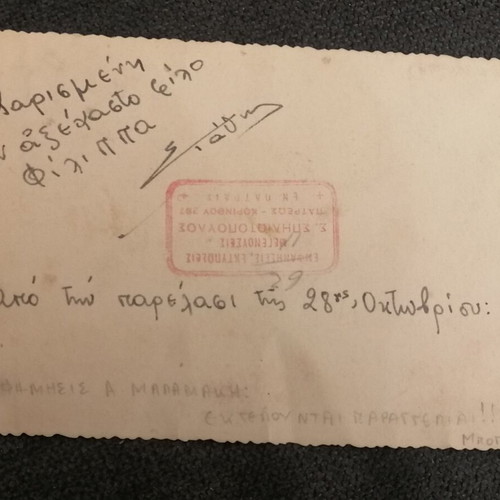 Χαρισμένη
ἀξέχαστο φίλο
Φίλιππα
Σιάθη
ΕΜΦΑΝΙΣΕΙΣ, ΕΚΤΥΠΩΣΕΙΣ
ΜΕΓΕΝΘΥΣΕΙΣ
Σ. ΣΠΗΛΙΩΤΟΠΟΥΛΟΣ
ΠΑΤΡΕΩΣ - ΚΟΡΙΝΘΟΥ
+ ΕΝ ΠΑΤΡΑΙΣ +
29
Ἀπό τήν παρέλασι τῆς 28ης, Ὀκτωβρίου:
Α ΜΑΛΑΜΑΚΗ:
ΕΚΤΕΛΟΥΝΤΑΙ ΠΑΡΑΓΓΕΛΙΑΙ!!